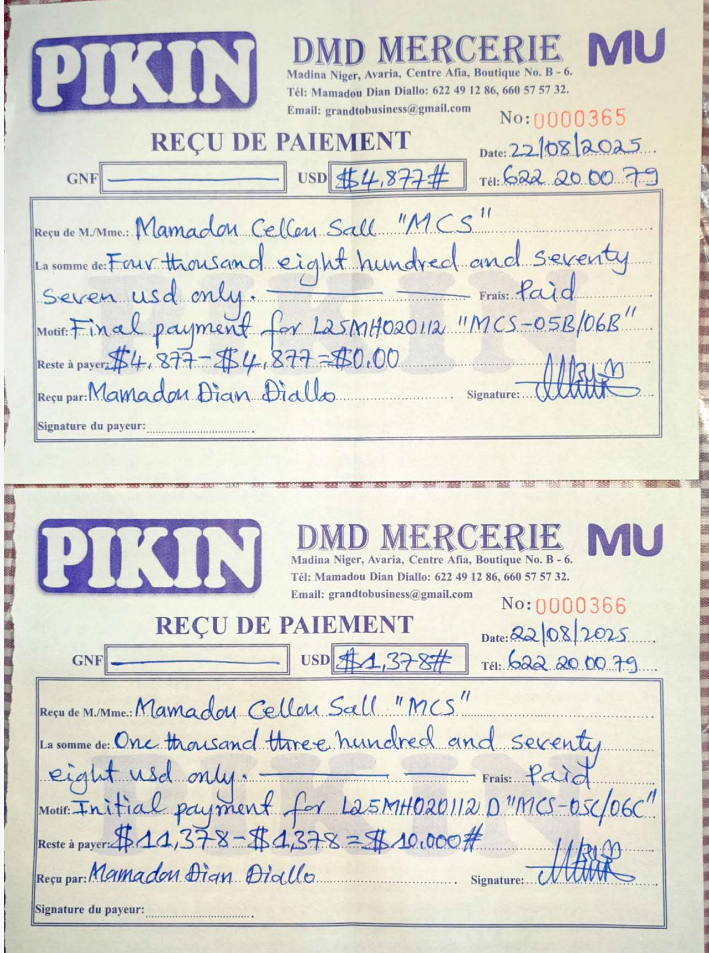 PIKIN
DMD MERCERIE MU
Madina Niger, Avaria, Centre Afia, Boutique No. B - 6.
Tél: Mamadou Dian Diallo: 622 49 12 86, 660 57 57 32.
Email: grandtobusiness@gmail.com
No: 0000365
REÇU DE PAIEMENT
Date: 22/08/2025
GNF USD $4,877# Tél: 622 20 00 79
Reçu de M./Mme.: Mamadou Cellou Sall "MCS"
La somme de: Four thousand eight hundred and seventy
seven usd only. Frais: Paid
Motif: Final payment for L25MH020112 "MCS-05B/06B"
Reste à payer: $4,877-$4,877=$0.00
Reçu par: Mamadou Dian Diallo Signature:
Signature du payeur:
PIKIN
DMD MERCERIE MU
Madina Niger, Avaria, Centre Afia, Boutique No. B - 6.
Tél: Mamadou Dian Diallo: 622 49 12 86, 660 57 57 32.
Email: grandtobusiness@gmail.com
No: 0000366
REÇU DE PAIEMENT
Date: 22/08/2025
GNF USD $1,378# Tél: 622 20 00 79
Reçu de M./Mme.: Mamadou Cellou Sall "MCS"
La somme de: One thousand three hundred and seventy
eight usd only. Frais: Paid
Motif: Initial payment for L25MH020112D "MCS-05C/06C"
Reste à payer: $11,378-$1,378=$10,000#
Reçu par: Mamadou Dian Diallo Signature:
Signature du payeur: